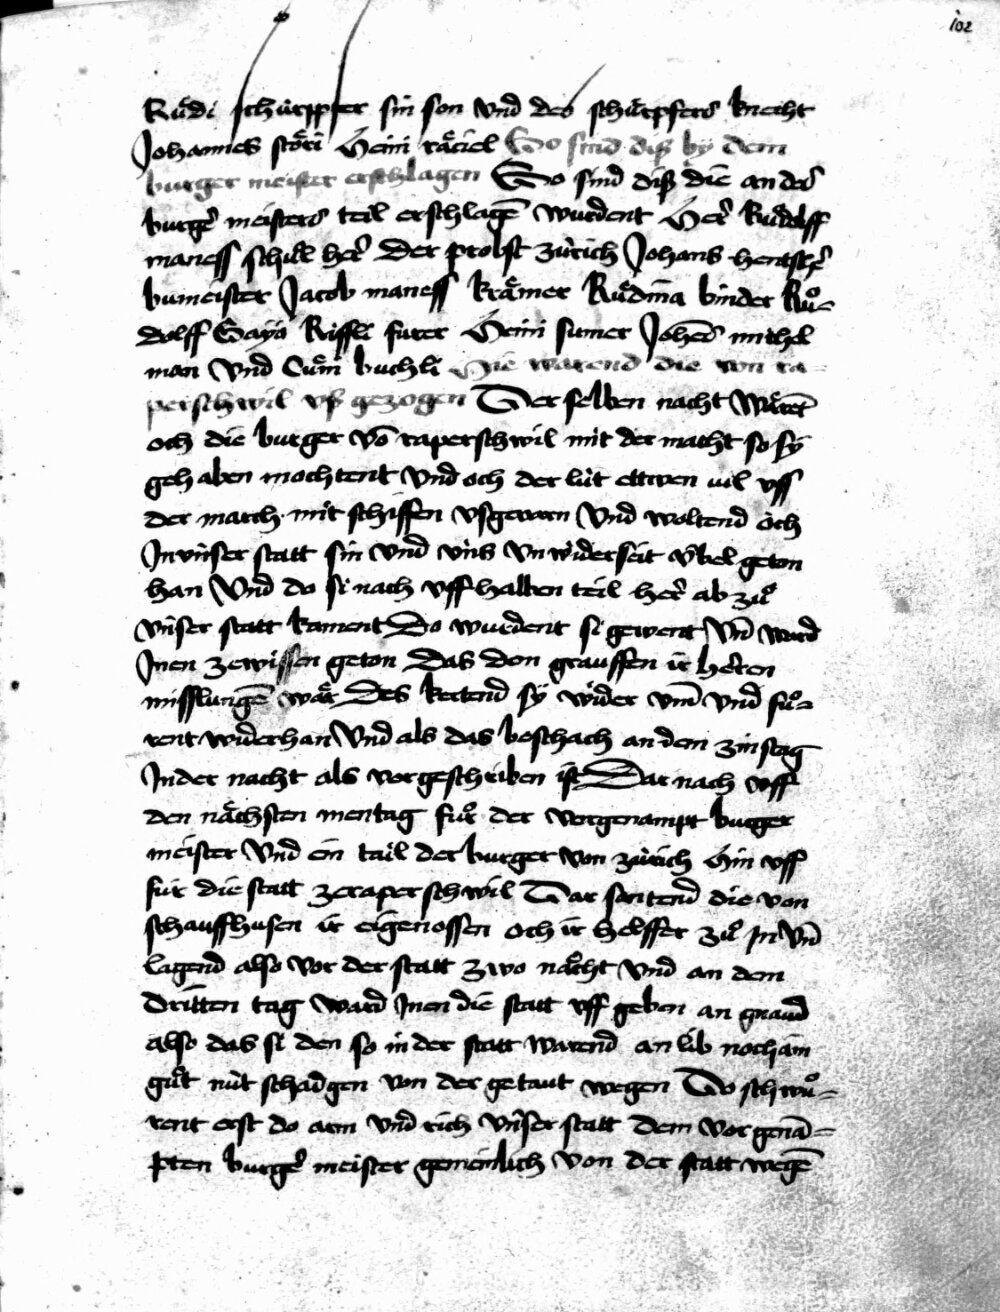 102
Ruͤdi schürppfer sin son vnd des schürpfers knecht
Johannes stoͤri Heini raͤciel So sind dis by dem
burger meister erschlagen So sind diß die an des
burgeꝛ meisters teil erschlagē wurdent Heꝛ Ruͦdolff
maness schill heꝛ Der probst zürich Johans
bumeister Jacob maness kraͤmer Ruͤdina binder Ruͦ-
dolff Gayo Riffli furer Heini sumer Johēs michel
man Vnd Cuͤni buchli Hie warend die von ra-
perschwil vß gezogen Der selben nacht Waͤrēt
och die burger vō raperschwil mit der macht so sy
gehaben mochtent Vnd och der lüt ettwen vil vff
der march mit schiffen vsgewarn Vnd woltend och
In vnser statt sin vnd vns vnwiderseit v́bel geton
han Vnd do si nach vff halben teil heꝛ ab zuͦ
vnser statt kament Do wurdent si gewent Vn̄ ward
Inen zewissen geton Das den grauffen ir herren
misslungē waͤr Des kertend sy wider vm̄ vnd fuͦ-
rent widerhan Vnd als das beschach an dem zinstag
In der nacht als vorgeschriben ist Dar nach vff
den naͤchsten mentag fuͦr der vorgenampt burger
meister Vnd ein tail der burger von zürich hin vff
für die statt ze raperschwil Dar santend die von
schauffhusen ir eigenossen och ir helffer zuͦ In Vn̄
lagend also vor der statt zwo naͤcht Vnd an dem
dritten tag Ward Inen die statt vff geben an gnaud
also das si den so in der statt warend an lib noch am
guͦt nüt schadgen von der getaut wegen Do schwuͦ-
rent erst do arm vnd rich vnser statt dem vor genā-
pten burgeꝛ meister gemeinlich von der statt wegē